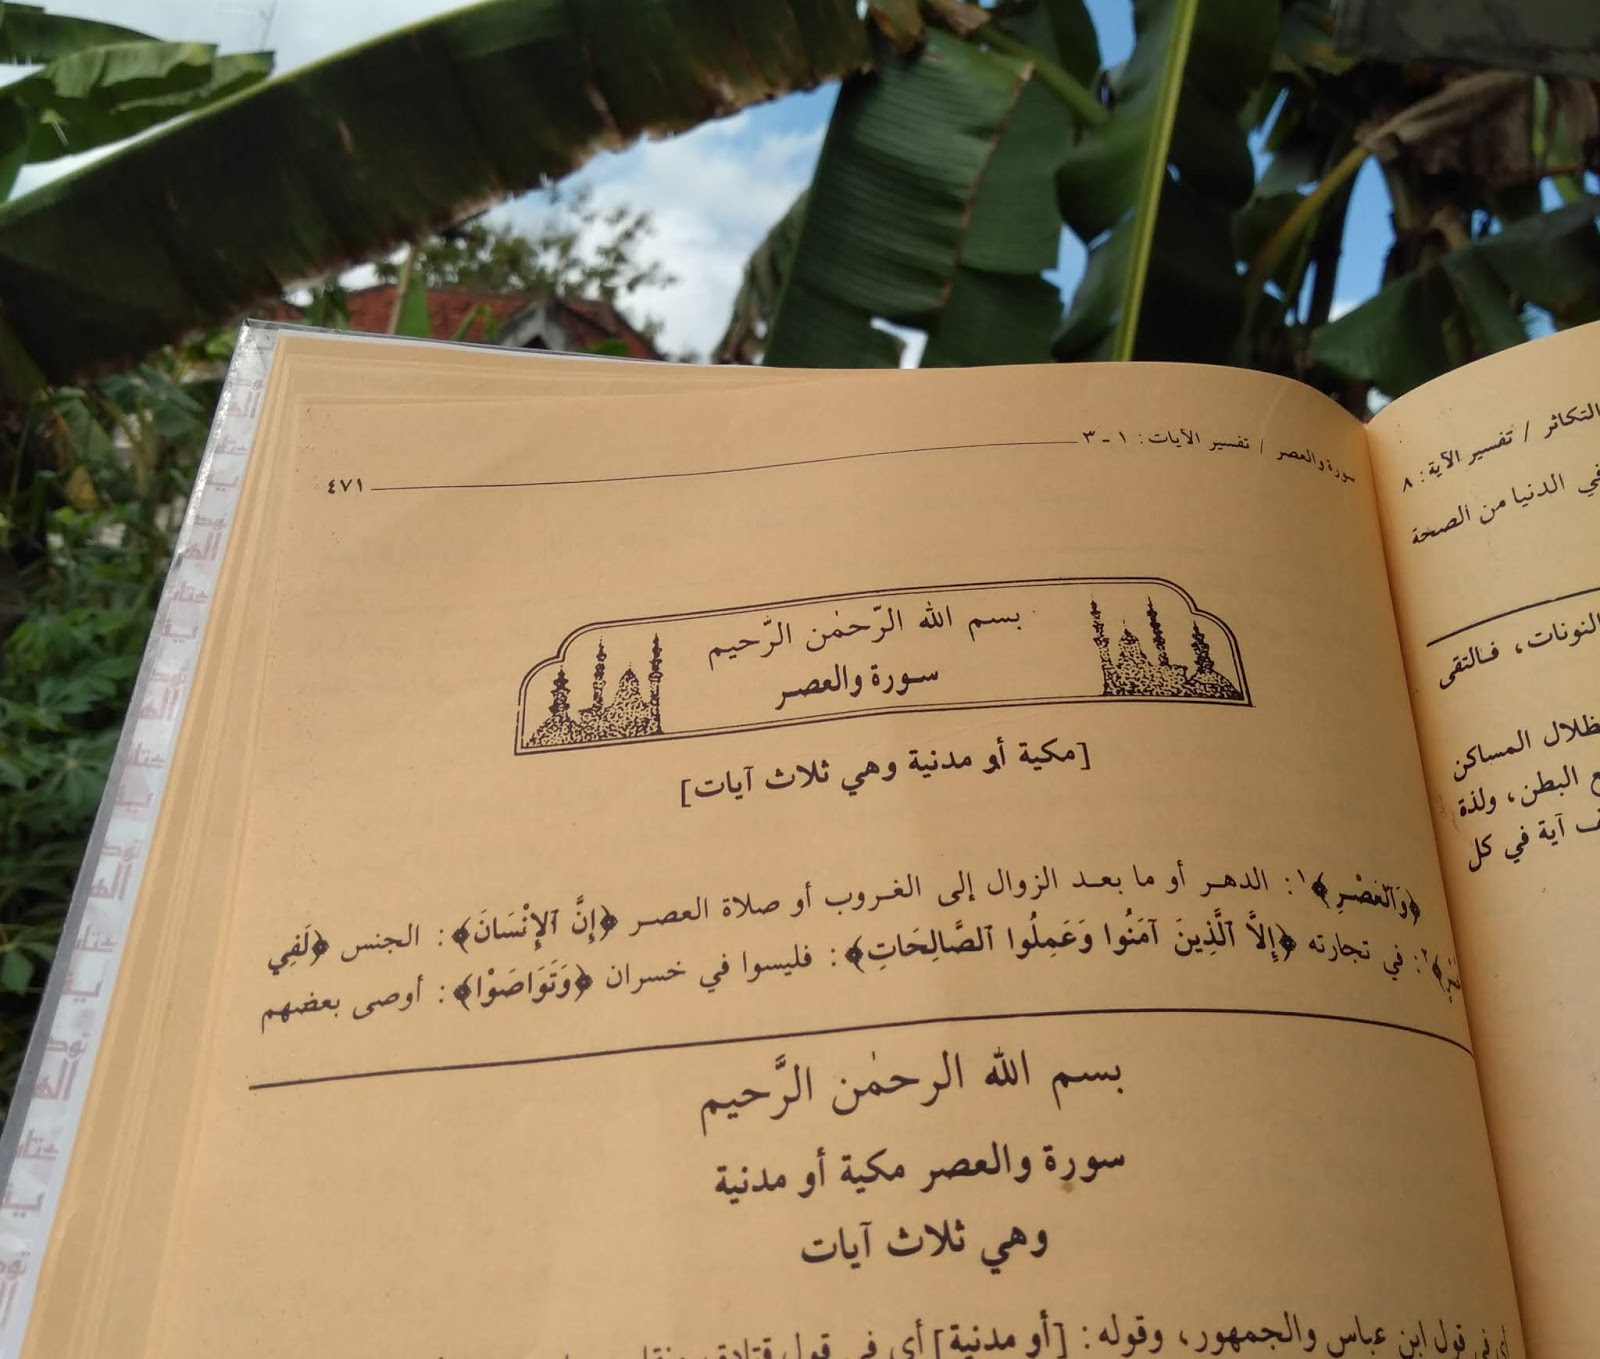 سورة والعصر / تفسير الآيات : ١ - ٣
٤٧١
بسم الله الرّحمٰن الرَّحيم
سورة والعصر
[مكية أو مدنية وهي ثلاث آيات]
﴿وَٱلْعَصْرِ﴾١: الدهر أو ما بعد الزوال إلى الغروب أو صلاة العصر ﴿إِنَّ ٱلإِنْسَانَ﴾: الجنس ﴿لَفِي
﴾٢: في تجارته ﴿إِلاَّ ٱلَّذِينَ آمَنُوا وَعَمِلُوا ٱلصَّالِحَاتِ﴾: فليسوا في خسران ﴿وَتَوَاصَوْا﴾: أوصى بعضهم
بسم الله الرحمٰن الرَّحيم
سورة والعصر مكية أو مدنية
وهي ثلاث آيات
أي في قول ابن عباس والجمهور، وقوله: [أو مدنية] أي في قول قتادة
التكاثر / تفسير الآية : ٨
في الدنيا من الصحة
النونات، فالتقى
ظلال المساكن
البطن، ولذة
آية في كل
توكـ
الهـ
كتابـ